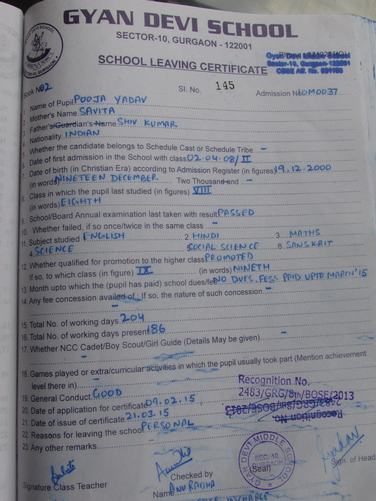 GYAN DEVI SCHOOL
SECTOR-10, GURGAON - 122001
SCHOOL LEAVING CERTIFICATE
Book No 02 Sl. No. 145 Admission No
Name of Pupil POOJA YADAV
Mother's Name SAVITA
Father's/Guardian's Name SHIV KUMAR
Nationality INDIAN
Whether the candidate belongs to Schedule Cast or Schedule Tribe -
Date of first admission in the School with class 02.04.08/II
Date of birth (in Christian Era) according to Admission Register (in figures) 19.12.2000
(in words) NINETEEN DECEMBER Two Thousand -
Class in which the pupil last studied (in figures) VIII
(in words) EIGHTH
School/Board Annual examination last taken with result PASSED
10. Whether failed, if so once/twice in the same class -
11. Subject studied ENGLISH 2 HINDI 3 MATHS
4 SCIENCE SOCIAL SCIENCE 6 SANSKRIT
12. Whether qualified for promotion to the higher class PROMOTED
If so, to which class (in figure) IX (in words) NINETH
13 Month upto which the (pupil has paid) school dues/fee NO DUES. FESS PAID UPTO MARCH'15
14. Any fee concession availed of. If so, the nature of such concession. -
15 Total No. of working days. 204
16 Total No. of working days present 186
17. Whether NCC Cadet/Boy Scout/Girl Guide (Details May be given) -
18. Games played or extra/curricular activities in which the pupil usually took part (Mention achievement
level there in)
19. General Conduct. GOOD
20. Date of application for certificate 09.02.15,
21. Date of issue of certificate 21.03.15
22. Reasons for leaving the school PERSONAL
23. Any other remarks.
Recognition No.
2483/GRG/8th/BOSE/2013
GYAN DEVI MIDDLE SCHOOL
SEC.-10
(Seal)
Signature Class Teacher
Checked by
Name ANURADHA
Sign. of Head